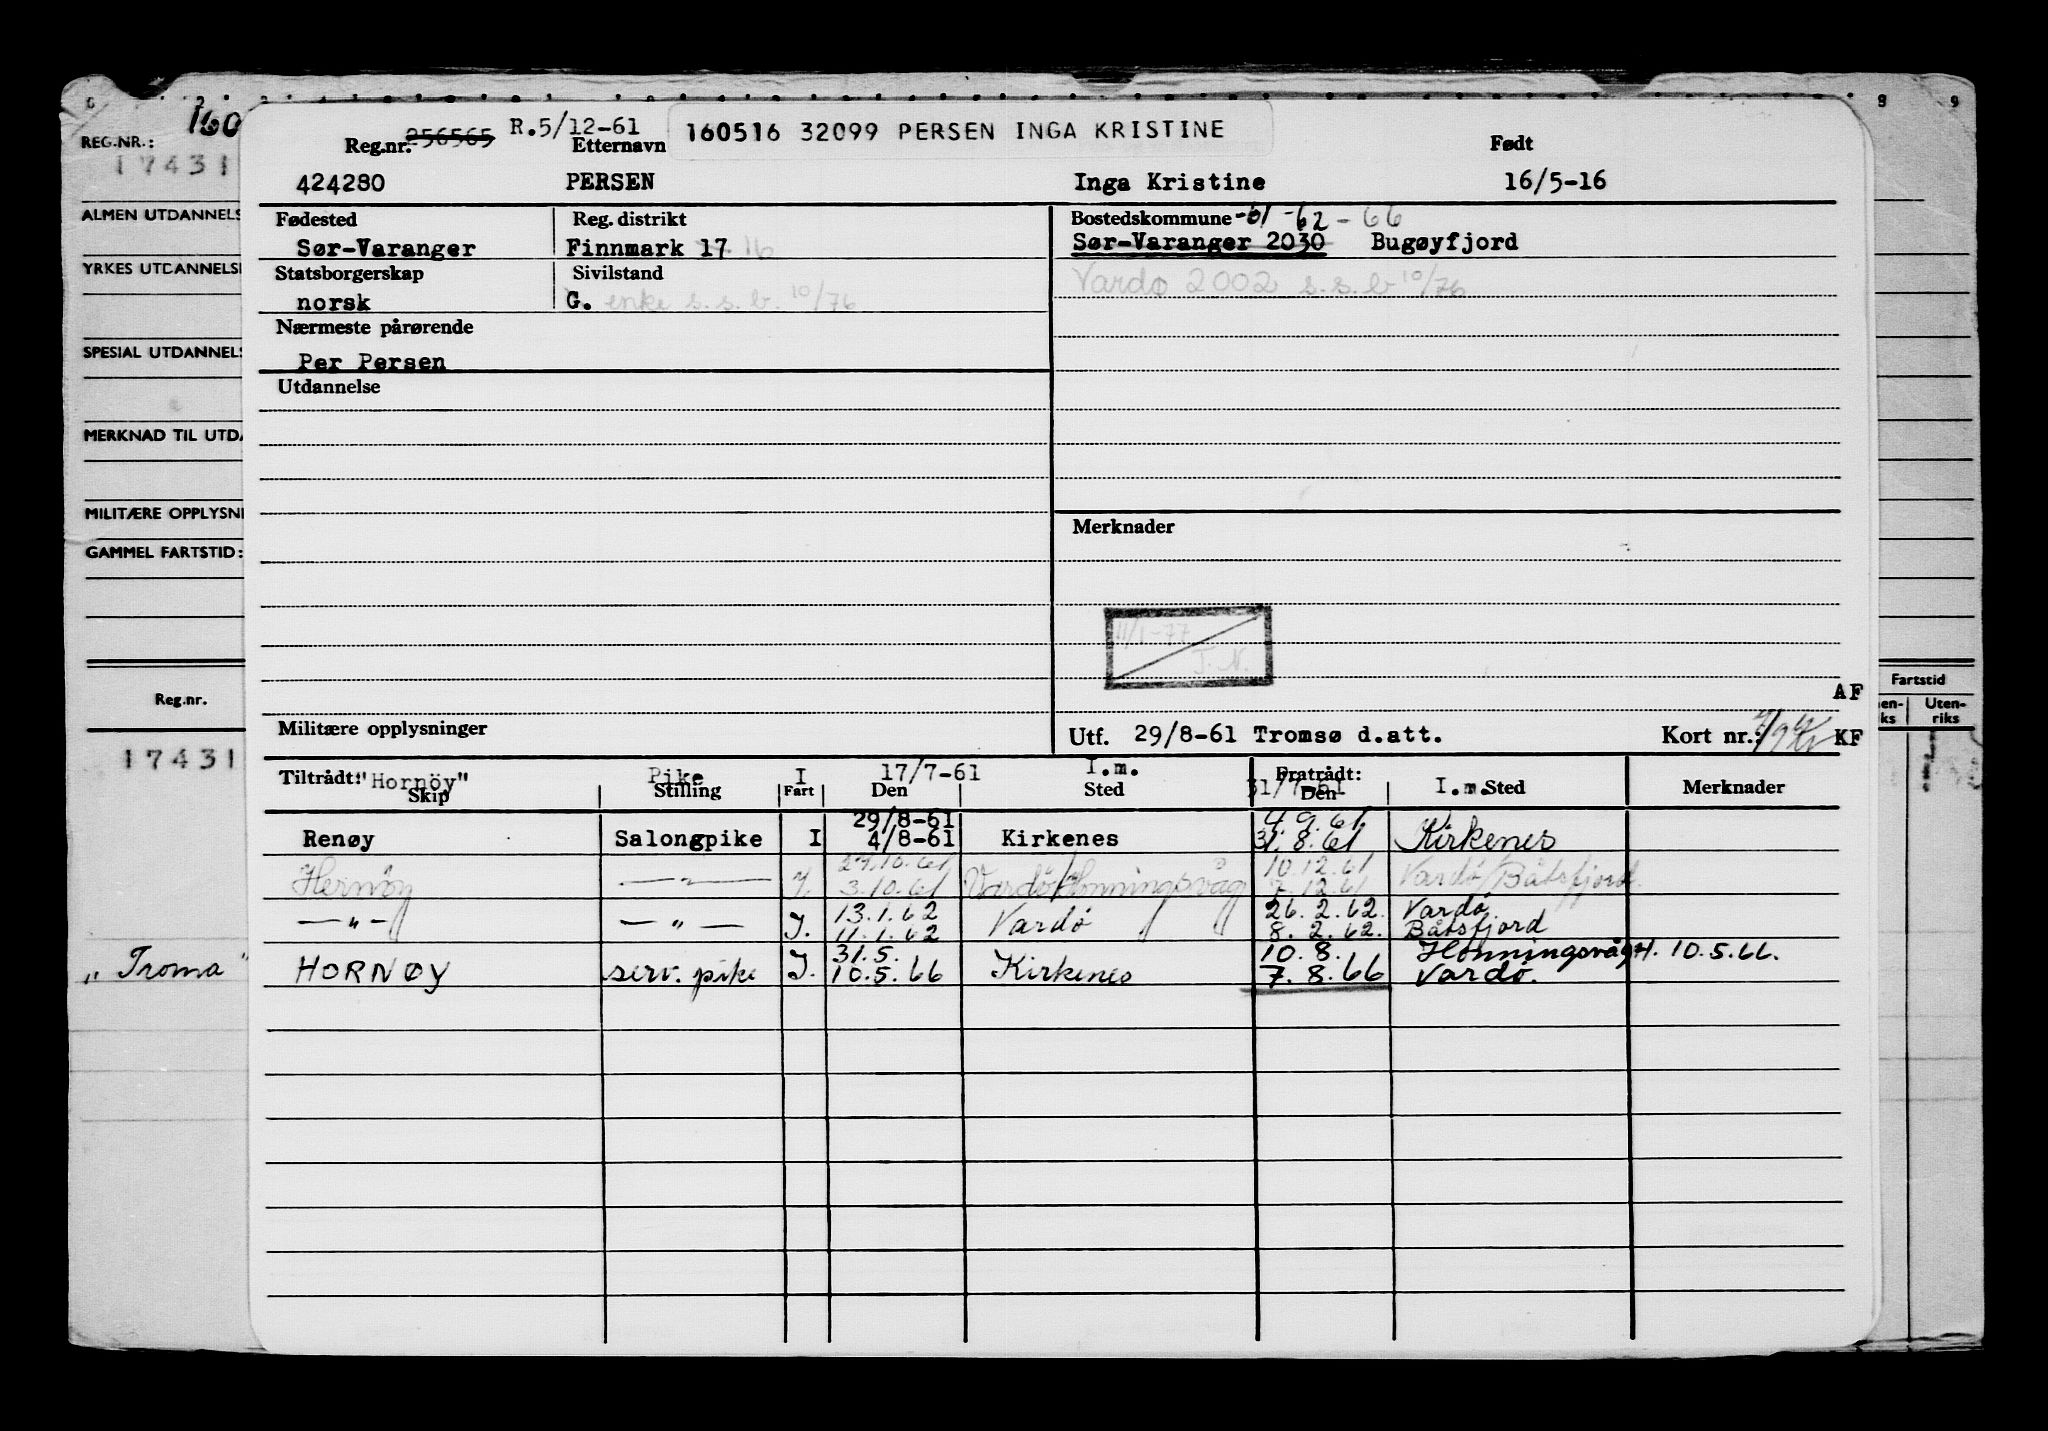 160
REG.NR.:
17431
ALMEN UTDANNELS
YRKES UTDANNELSE
SPESIAL UTDANNELS
MERKNAD TIL UTDA
MILITÆRE OPPLYSNI
GAMMEL FARTSTID:
Reg.nr.
17431
„Troma"
R.5/12-61 160516 32099 PERSEN INGA KRISTINE
Reg.nr. 256565 Etternavn Født
424280 PERSEN Inga Kristine 16/5-16
Fødested Reg. distrikt Bostedskommune -61 -62 - 66
Sør-Varanger Finnmark 17 16 Sør-Varanger 2030 Bugøyfjord
Statsborgerskap Sivilstand Vardø 2002 s.s.b 10/76
norsk G. enke s.s.b. 10/76
Nærmeste pårørende
Per Persen
Utdannelse
Merknader
11/1-77
J. N.
AF
Militære opplysninger Utf. 29/8-61 Tromsø d.att. Kort nr.: KF
Tiltrådt: "Hornöy" Pike I 17/7-61 I.m. Fratrådt: 31/7-61 I.m.
Skip Stilling Fart Den Sted Den Sted Merknader
29/8-61 4.9.61
Renøy Salongpike I 4/8-61 Kirkenes 31.8.61 Kirkenes
27.10.61 10.12.61
Hernöy —„— I. 3.10.61 Vardø/Honningsvåg 7.12.61 Vardø/Båtsfjord.
13.1.62 26.2.62. Vardø
—„— —„— I. 11.1.62 Vardø 8.2.62. Båtsfjord
31.5. 10.8. Honningsvåg H. 10.5.66.
HORNØY serv. pike I. 10.5.66 Kirkenes 7.8.66 Vardø.
Fartstid
en-
ks
Uten-
riks